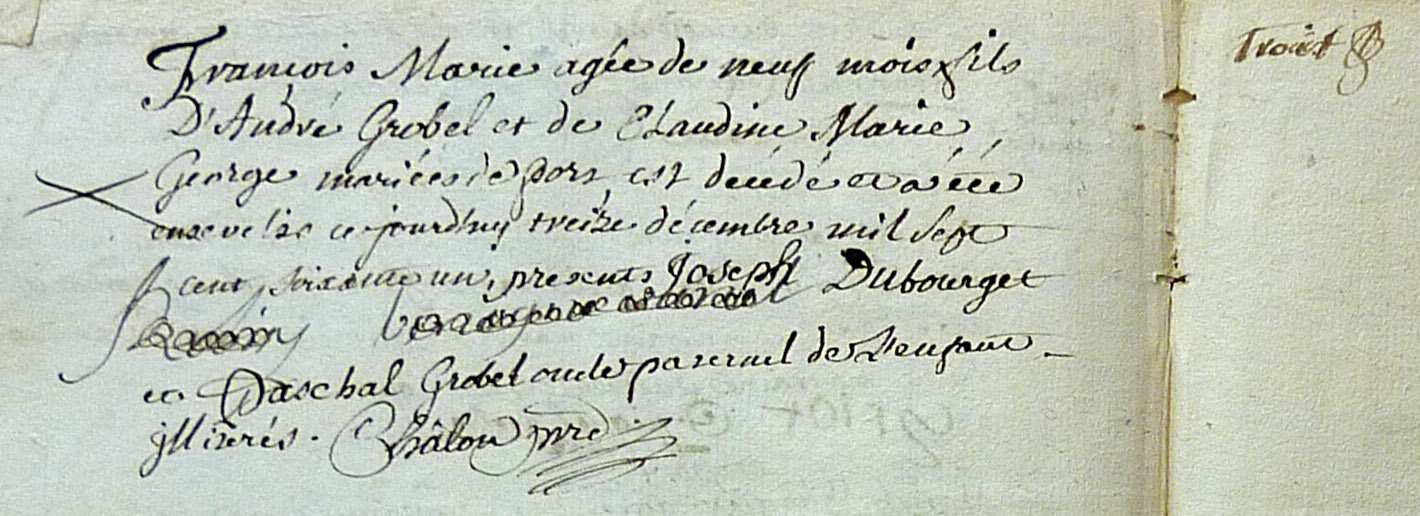 François Marie agée de neuf mois fils
D'André Grobel et de Claudine Marie
George mariées de pors, est décédé et a été
ensevelie ce jourd'huy treize décembre mil sept
cent soixante un, presents Joseph Dubourget
et Paschal Grobel oncle paternel de l'enfant
illiterés. Châlon ptre